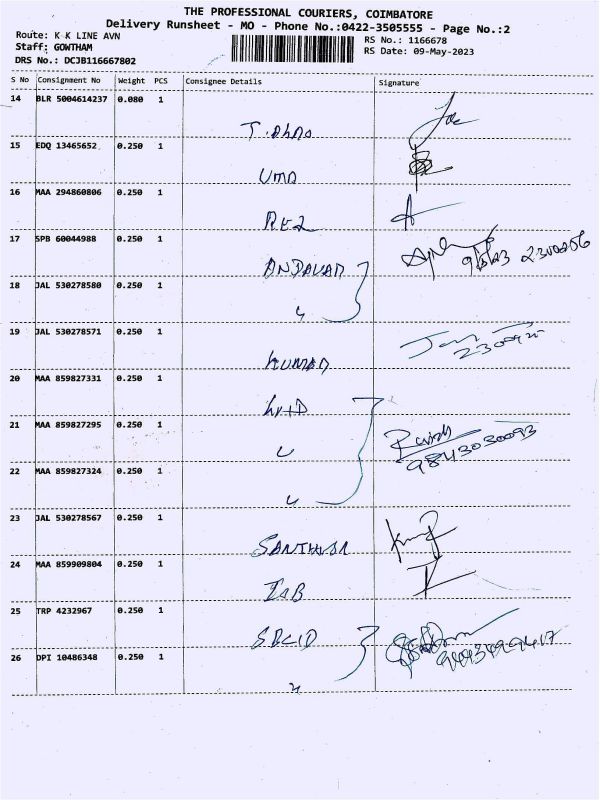 THE PROFESSIONAL COURIERS, COIMBATORE
Delivery Runsheet - MO - Phone No.:0422-3505555 - Page No.:2
Route: K K LINE AVN
RS No.: 1166678
Staff: GOWTHAM
RS Date: 09-May-2023
DRS No.: DCJB116667802
S No Consignment No Weight PCS Consignee Details Signature
14 BLR 5004614237 0.080 1
15 EDQ 13465652 0.250 1
UMA
16 MAA 294860806 0.250 1
17 SPB 60044988 0.250 1
ANDAVAR
18 JAL 530278580 0.250 1
19 JAL 530278571 0.250 1
KUMAR
20 MAA 859827331 0.250 1
21 MAA 859827295 0.250 1
9843030093
22 MAA 859827324 0.250 1
23 JAL 530278567 0.250 1
24 MAA 859909804 0.250 1
25 TRP 4232967 0.250 1
26 DPI 10486348 0.250 1